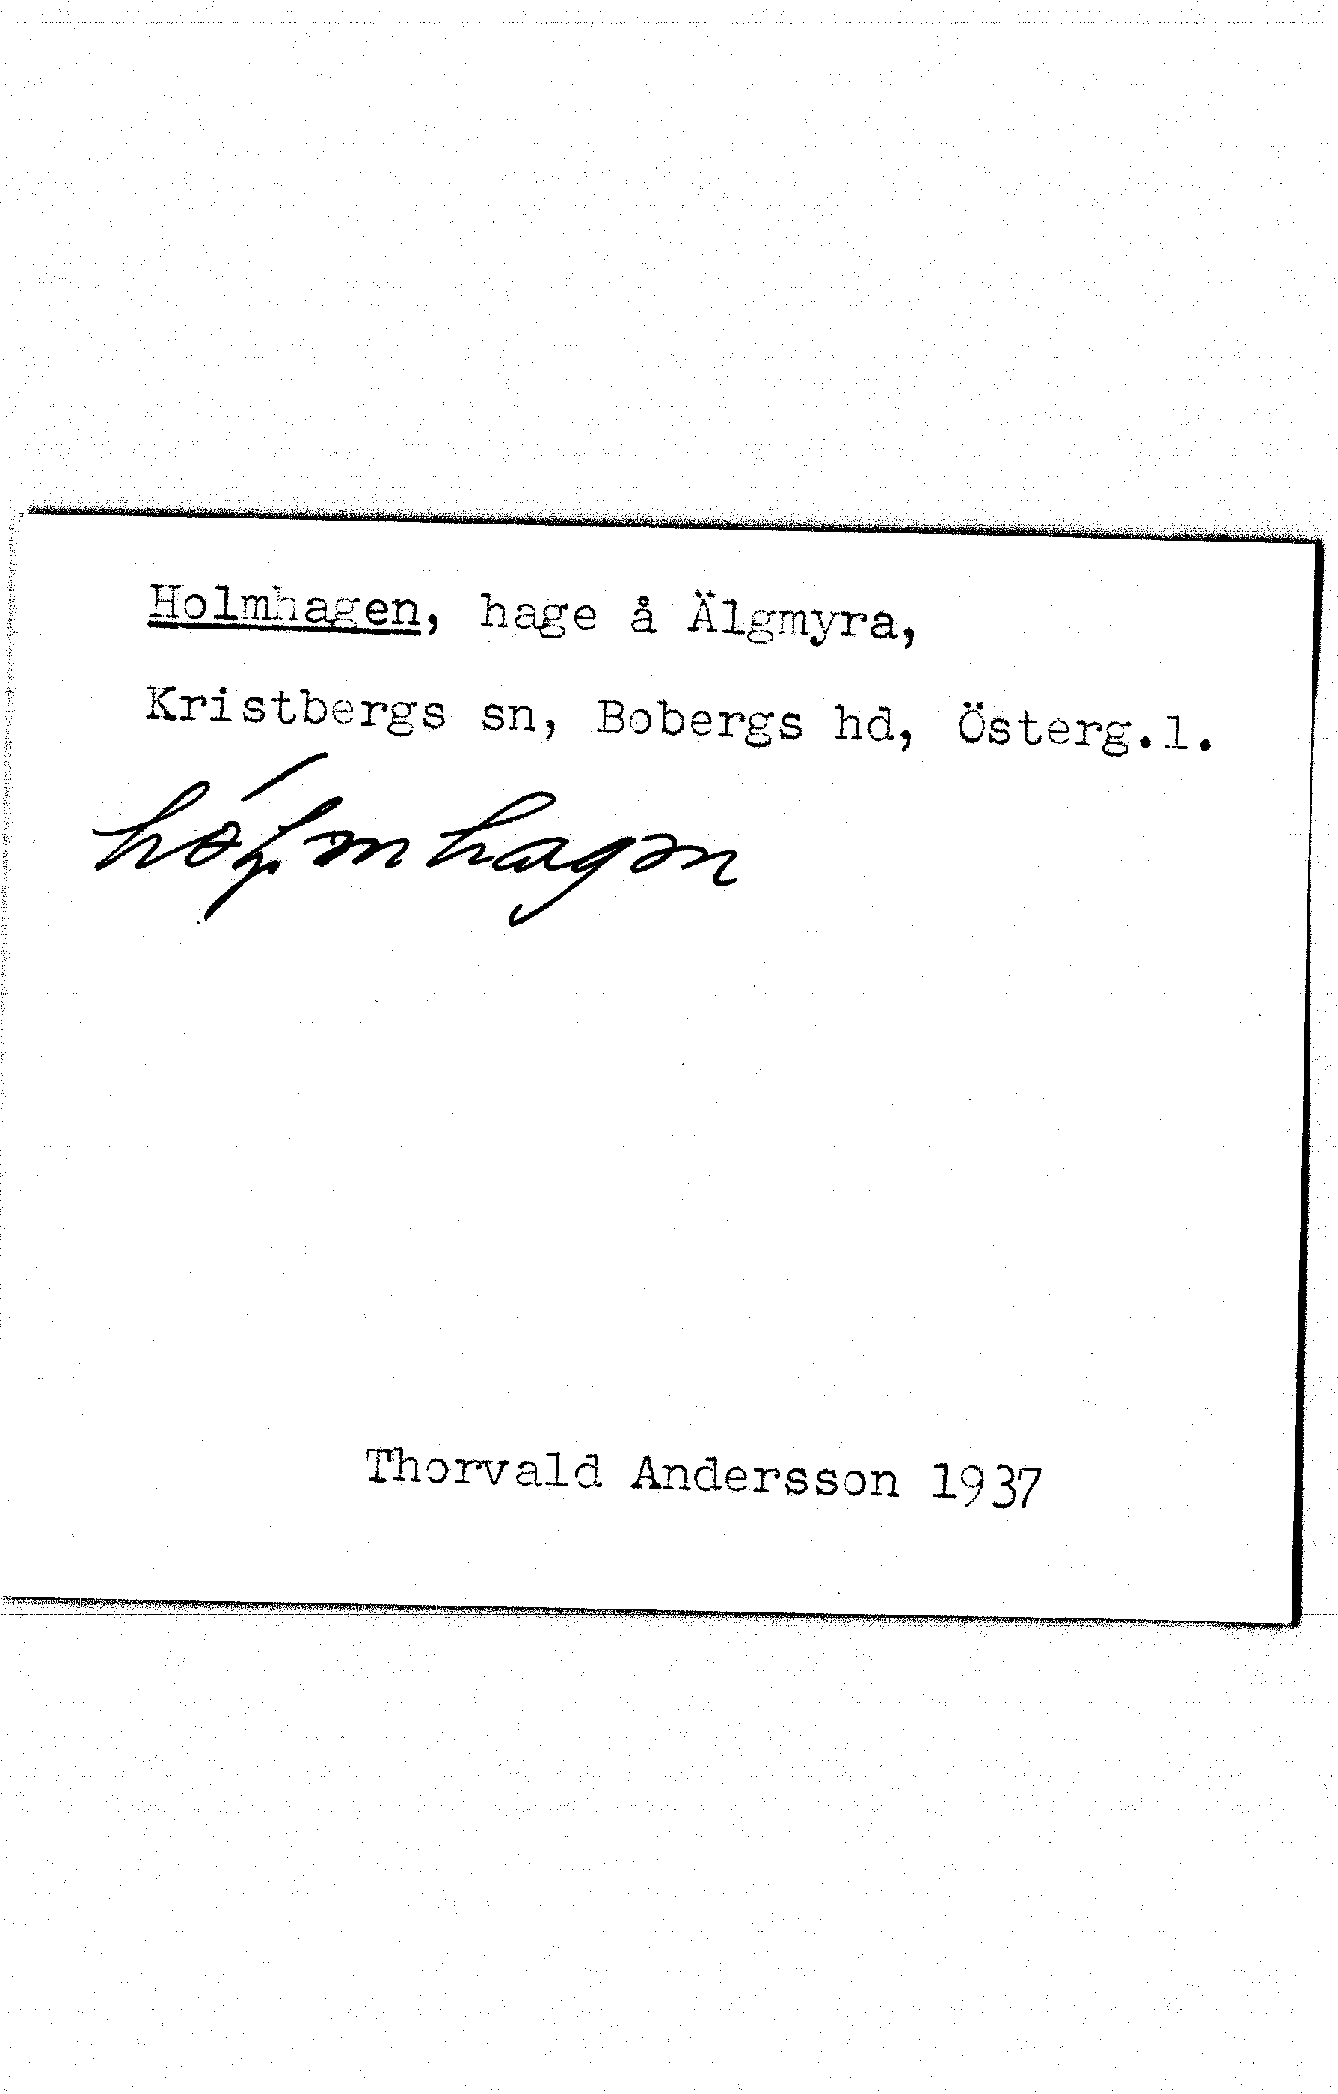 Holmhagen, hage å Älgmyra,
Kristbergs sn, Bobergs hd, Österg.l.
Thorvald Andersson 1937